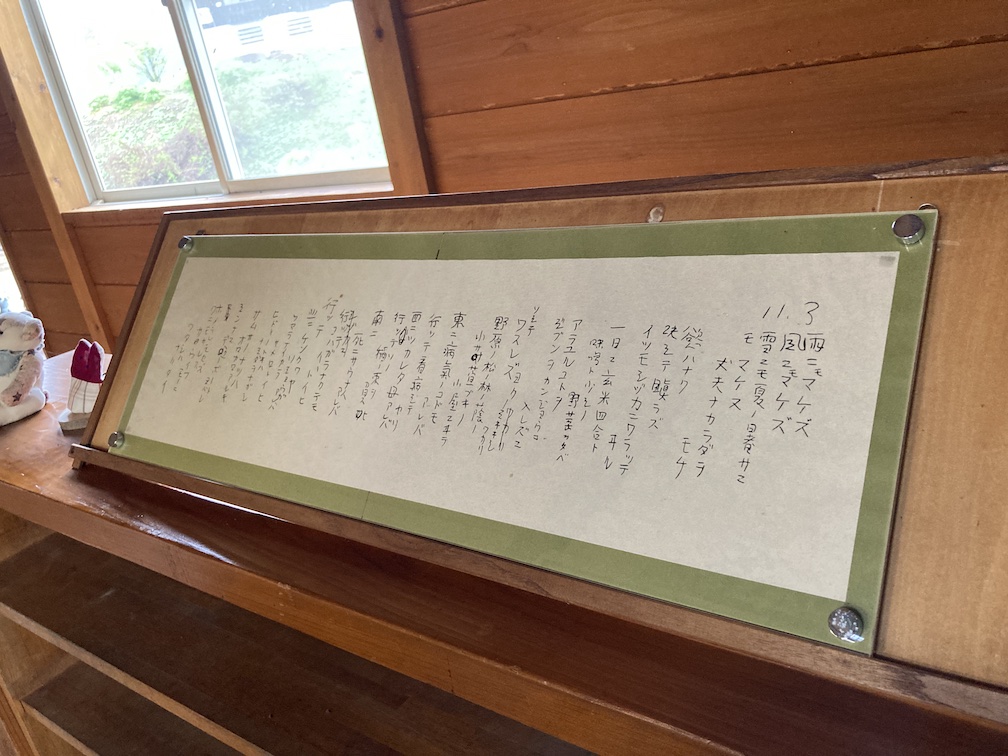 11.3
雨ニモマケズ
風ニモマケズ
雪ニモ夏ノ暑サニ
モマケヌ
丈夫ナカラダヲ
モチ
慾ハナク
決シテ瞋ラズ
イツモシヅカニワラッテ
ヰル
一日ニ玄米四合ト
味噌ト少シノ
野菜ヲタベ
アラユルコトヲ
ジブンヲカンジョウニ
入レズニ
ヨクミキキシワカリ
ソシテ
ワスレズ
野原ノ松ノ林ノ蔭ノ
小サナ萓ブキノ
小屋ニヰテ
東ニ病気ノコドモ
アレバ
行ッテ看病シテ
ヤリ
西ニツカレタ母アレバ
行ッテソノ
稲ノ束ヲ負ヒ
南ニ
死ニサウナ人
アレバ
行ッテ
コハガラナクテモ
イヽトイヒ
北ニケンクヮヤ